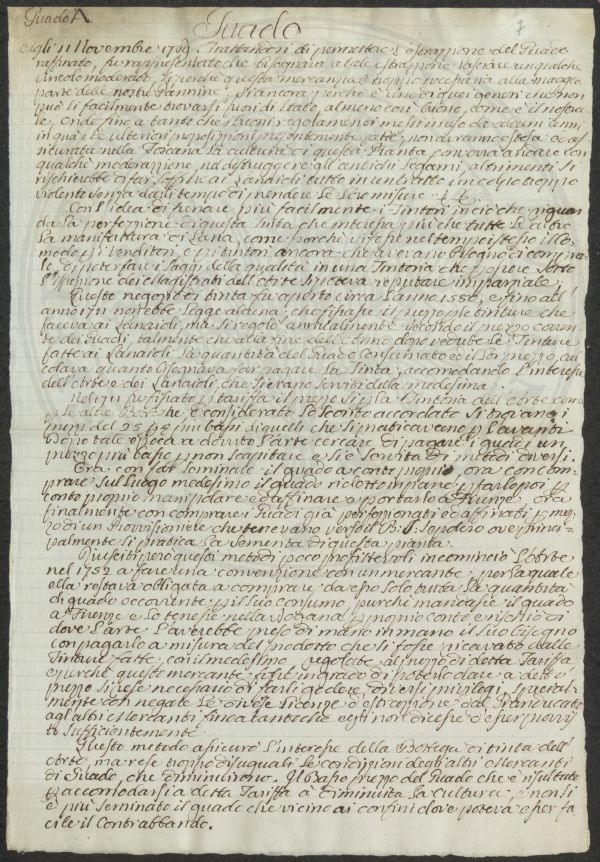 Guado A
Guado
7
Agli 11 Novembre 1769. Trattandosi di permettere l'estrazzione del Guado
raffinato, fu rappresentato che bisognava a tale estrazzione lasciare un qualche
vincolo moderato, sì perchè questa mercanzia è troppo necessaria alla maggior
parte delle nostre Pannine, sì ancora perchè è uno di quei generi che non
può sì facilmente trovarsi fuori di Stato, almeno così buono, come è il nostra-
le, onde fino a tanto che i buoni regolamenti messi in uso da alcuni anni
in quà e le ulteriori proposizioni presentemente fatte, non avranno estesa ed as-
sicurata nella Toscana la cultura di questa Pianta, conviene andare con
qualche moderazione nel distruggere gli antichi legami, altrimenti si
rischierebbe di far soffrire ai Lanaioli tutto in un tratto un colpo troppo
violento senza dargli tempo di prendere le loro misure.
Con l'idea di servire più facilmente i Tintori in ciò che riguar-
da la perfezzione di questa tinta che interessa più che tutte le altre
la manifattura di Lana, come perchè vi fosse nel tempo istesso il Co-
modo p i venditori, e p i tintori ancora che avevano bisogno di compra-
le, di poter fare i saggi della qualità in una Tintoria che p essere sotto
l'ispezione dei Magistrati dell'Arte si poteva reputare imparziale,
Questo negozio di tinta fu aperto circa l'anno 1550, e fino all'
anno 1711 non ebbe legge alcuna, che fissasse il prezzo p le tinture che
faceva ai Lanaioli, ma si regolò annualmente secondo il prezzo corren-
te dei Guadi, talmente che alla fine dell'Anno dopo vedute le Tinture
fatte ai Lanaioli la quantità del Guado consumato ed il suo prezzo, cal-
colava quanto bisognava far pagare la Tinta, accomodando l'interesse
dell'Arte e dei Lanaioli, che si erano serviti della medesima.
Nel 1711 fu fissato p tariffa il prezzo sì p la Tintoria dell'Arte come
p le altre Botteghe, e considerato lo Sconto accordato si trovano i
prezzi del 25 p % più bassi di quelli che si praticavano p l'avanti
Dopo tale epoca a dovuto l'Arte cercare di pagare i guadi un
prezzo più basso p non scapitare e si è servita di metodi diversi.
Ora con far seminare il guado a conto proprio, ora con com-
prare sul luogo medesimo il guado ridotto in pane, p farlo poi p
conto proprio manipolare ed affinare e portarlo a Firenze, ora
finalmente con comprare i Guadi già perfezzionati ed affinati p mez-
zo di un Provvisioniere che tenevano verso il B. S. Sepolcro ove princi-
palmente si pratica la Sementa di questa pianta.
Riusciti però questi metodi poco profittevoli incominciò l'Arte
nel 1752 a fare una convenzione con un mercante, per la quale
ella restava obbligata a comprare da esso solo tutta la quantità
di guado occorrente p il suo consumo, purchè mandasse il guado
a Firenze e lo tenesse nella Dogana p proprio conto e rischio di
dove l'Arte l'averebbe preso di mano in mano il suo bisogno
con pagarlo a misura del prodotto che si fosse ricavato dalle
Tinture fatte, con il medesimo, regolate al prezzo di detta Tariffa
e perchè questo mercante fosse in grado di poterlo dare a detto
prezzo si rese necessario di farli godere diversi privilegi, special-
mente con negate le diverse licenze d'estrazzione dal Granducato
agl'altri Mercanti finca tanto che egli non dicesse d'esser provvis-
to sufficientemente
Questo metodo assicurò l'interesse della Bottega di tinta dell'
Arte, ma rese troppo disuguali le condizioni degli altri Mercanti
di Guado, che diminuirono. Il basso prezzo del Guado che è risultato
p accomodarsi a detta Tariffa à diminuita la cultura, e non si
è più seminato il guado che vicino ai confini dove poteva esser fa-
cile il Contrabbando.